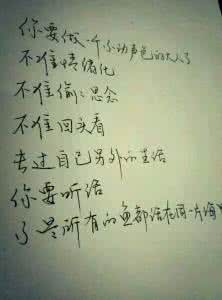 你要做一个不动声色的大人了
不准情绪化
不准偷偷思念
不准回头看
去过自己另外的生活
你要听话
不是所有的鱼都活在同一片海里